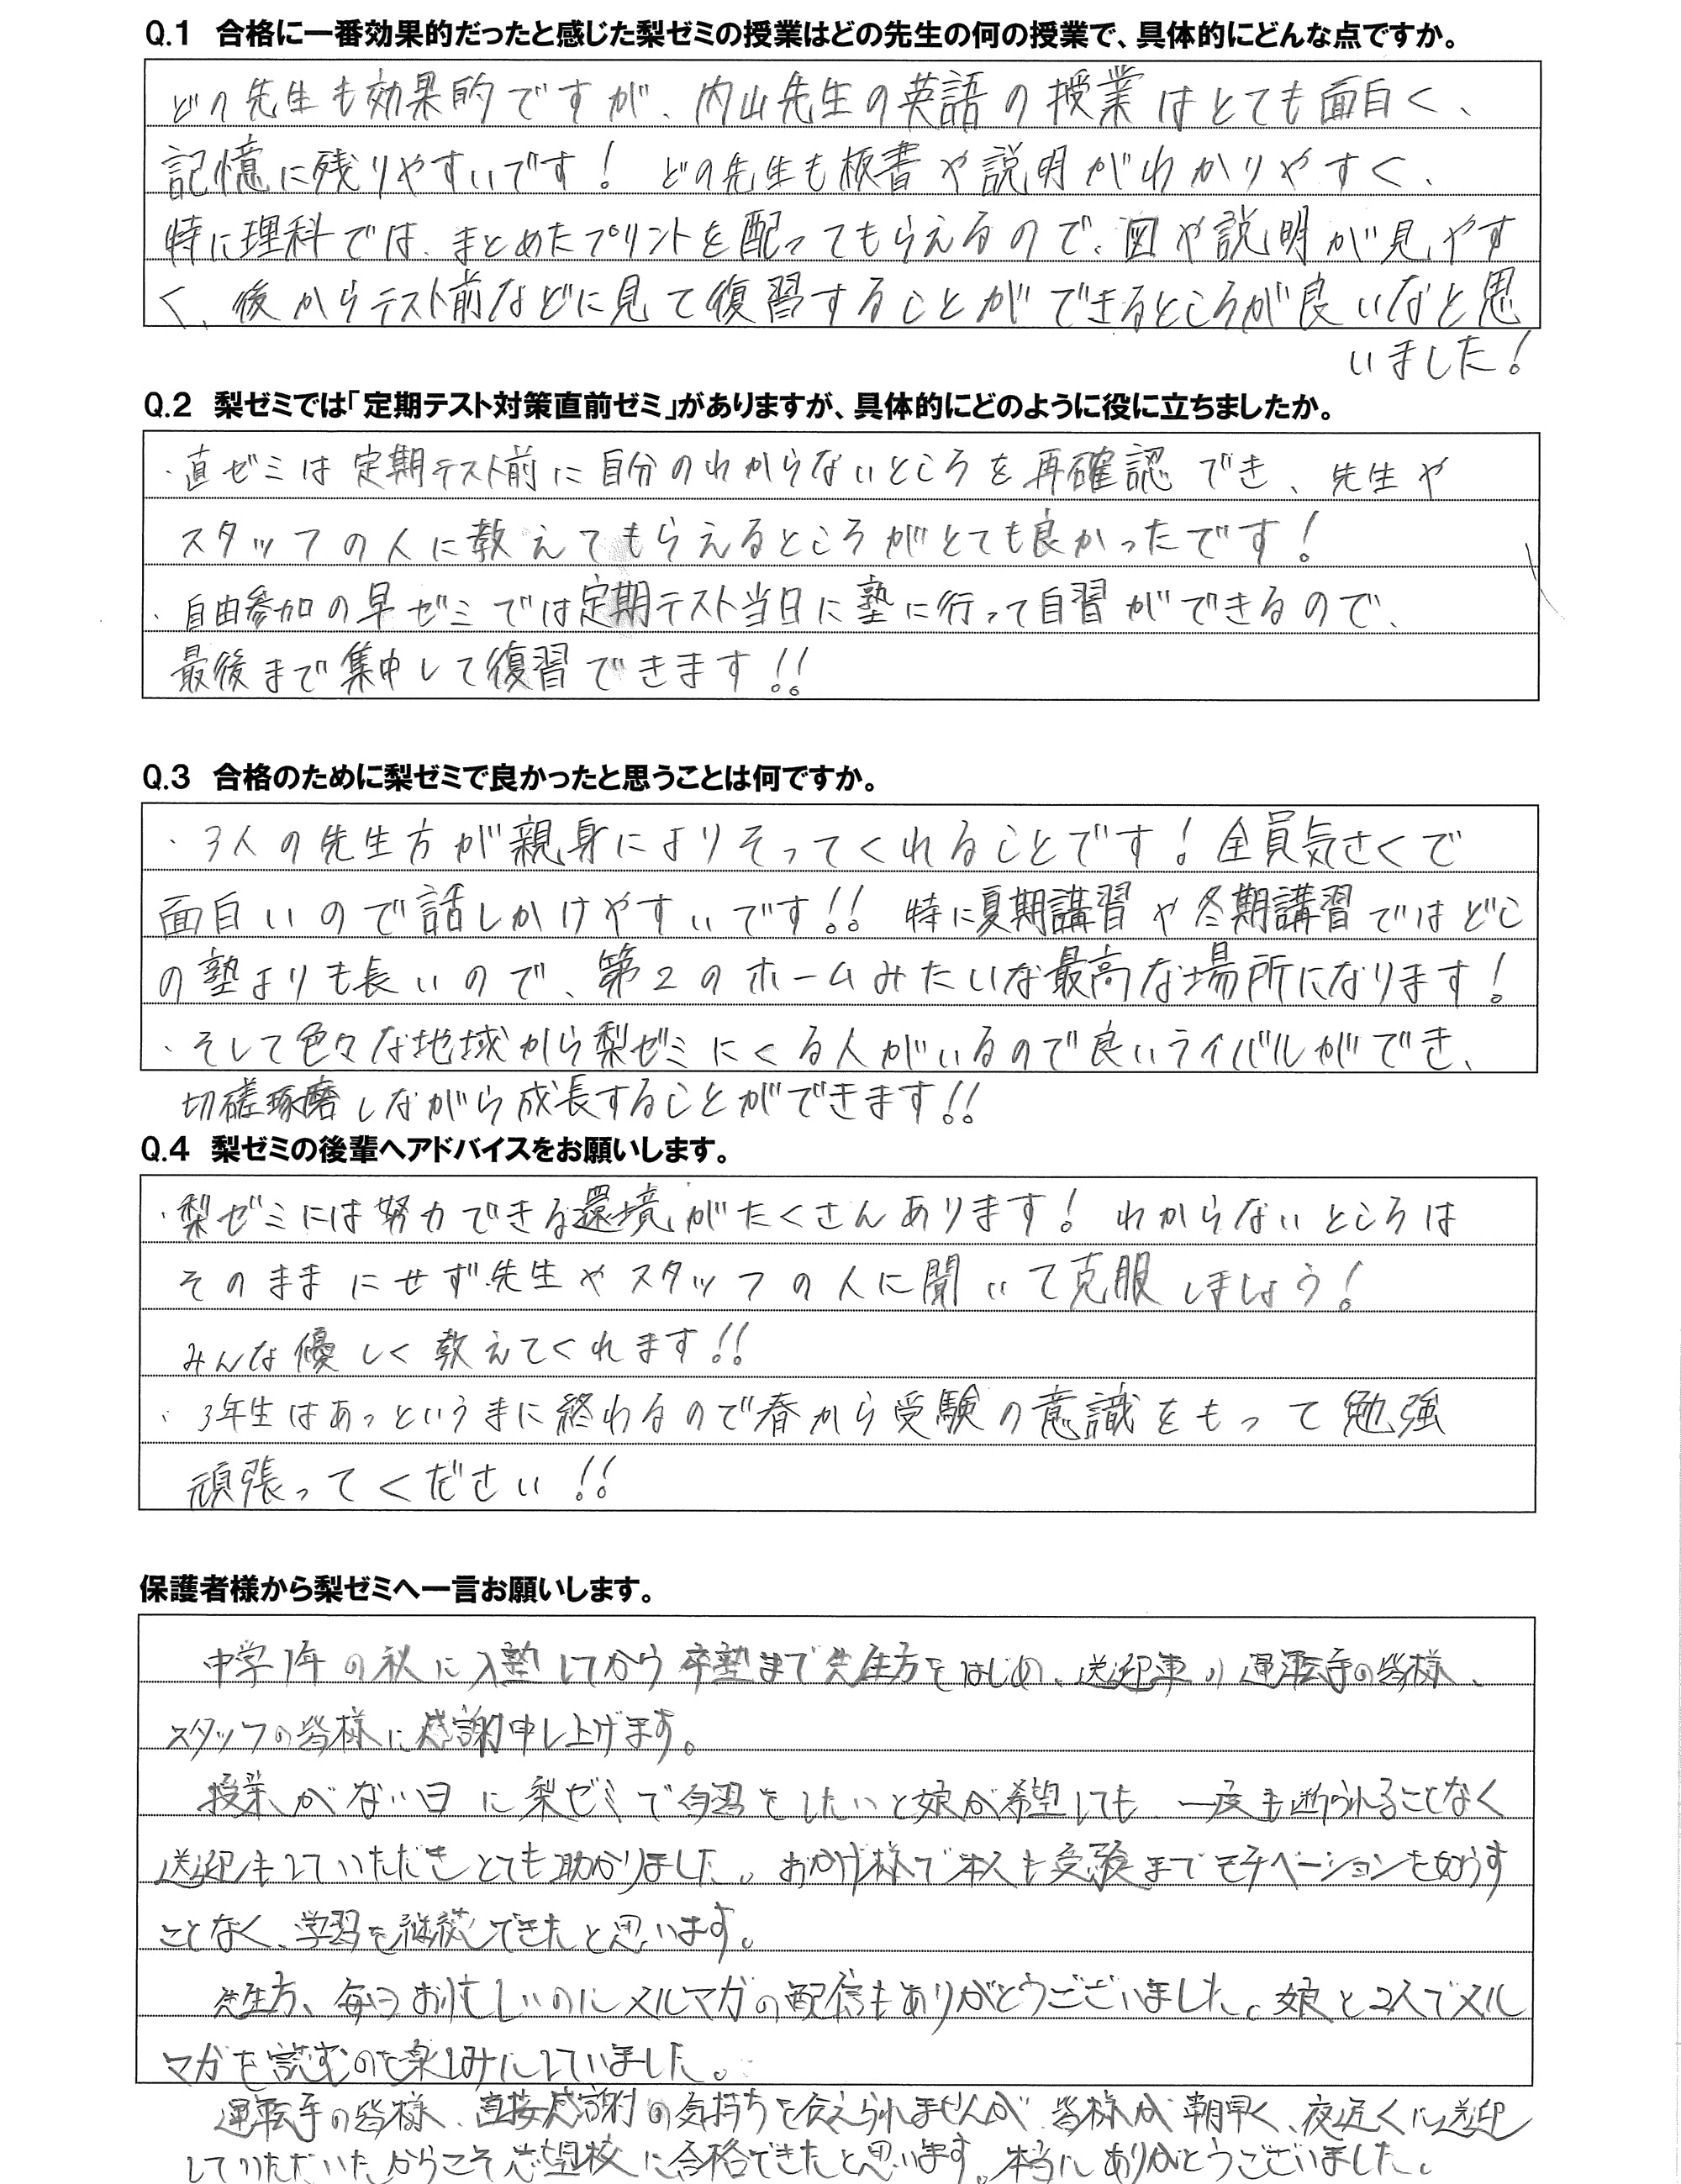 Q.1 合格に一番効果的だったと感じた梨ゼミの授業はどの先生の何の授業で、具体的にどんな点ですか。
どの先生も効果的ですが、内山先生の英語の授業はとても面白く、
記憶に残りやすいです！ どの先生も板書や説明がわかりやすく、
特に理科では、まとめたプリントを配ってもらえるので、図や説明が見やす
く、後からテスト前などに見て復習することができるところが良いなと思
いました！
Q.2 梨ゼミでは「定期テスト対策直前ゼミ」がありますが、具体的にどのように役に立ちましたか。
・直ゼミは定期テスト前に自分のわからないところを再確認でき、先生や
スタッフの人に教えてもらえるところがとても良かったです！
・自由参加の早ゼミでは定期テスト当日に塾に行って自習ができるので、
最後まで集中して復習できます！！
Q.3 合格のために梨ゼミで良かったと思うことは何ですか。
・3人の先生方が親身によりそってくれることです！全員気さくで
面白いので話しかけやすいです！！ 特に夏期講習や冬期講習ではどこ
の塾よりも長いので、第2のホームみたいな最高な場所になります！
・そして色々な地域から梨ゼミにくる人がいるので良いライバルができ、
切磋琢磨しながら成長することができます！！
Q.4 梨ゼミの後輩へアドバイスをお願いします。
・梨ゼミには努力できる環境がたくさんあります！ わからないところは
そのままにせず先生やスタッフの人に聞いて克服しましょう！
みんな優しく教えてくれます！！
・3年生はあっというまに終わるので春から受験の意識をもって勉強
頑張ってください！！
保護者様から梨ゼミへ一言お願いします。
中学1年の秋に入塾してから卒塾まで先生方をはじめ、送迎車の運転手の皆様、
スタッフの皆様に感謝申し上げます。
授業がない日に梨ゼミで自習をしたいと娘が希望しても、一度も断られることなく
送迎もしていただきとても助かりました。おかげ様で本人も受験までモチベーションを如うす
ことなく、学習を継続できたと思います。
先生方、毎日お忙しいのにメルマガの配信もありがとうございました。娘と2人でメル
マガを読むのを楽しみにしていました。
運転手の皆様、直接感謝の気持ちを伝えられませんが、皆様が朝早く、夜遅くに送迎
していただいたからこそ志望校に合格できたと思います。本当にありがとうございました。